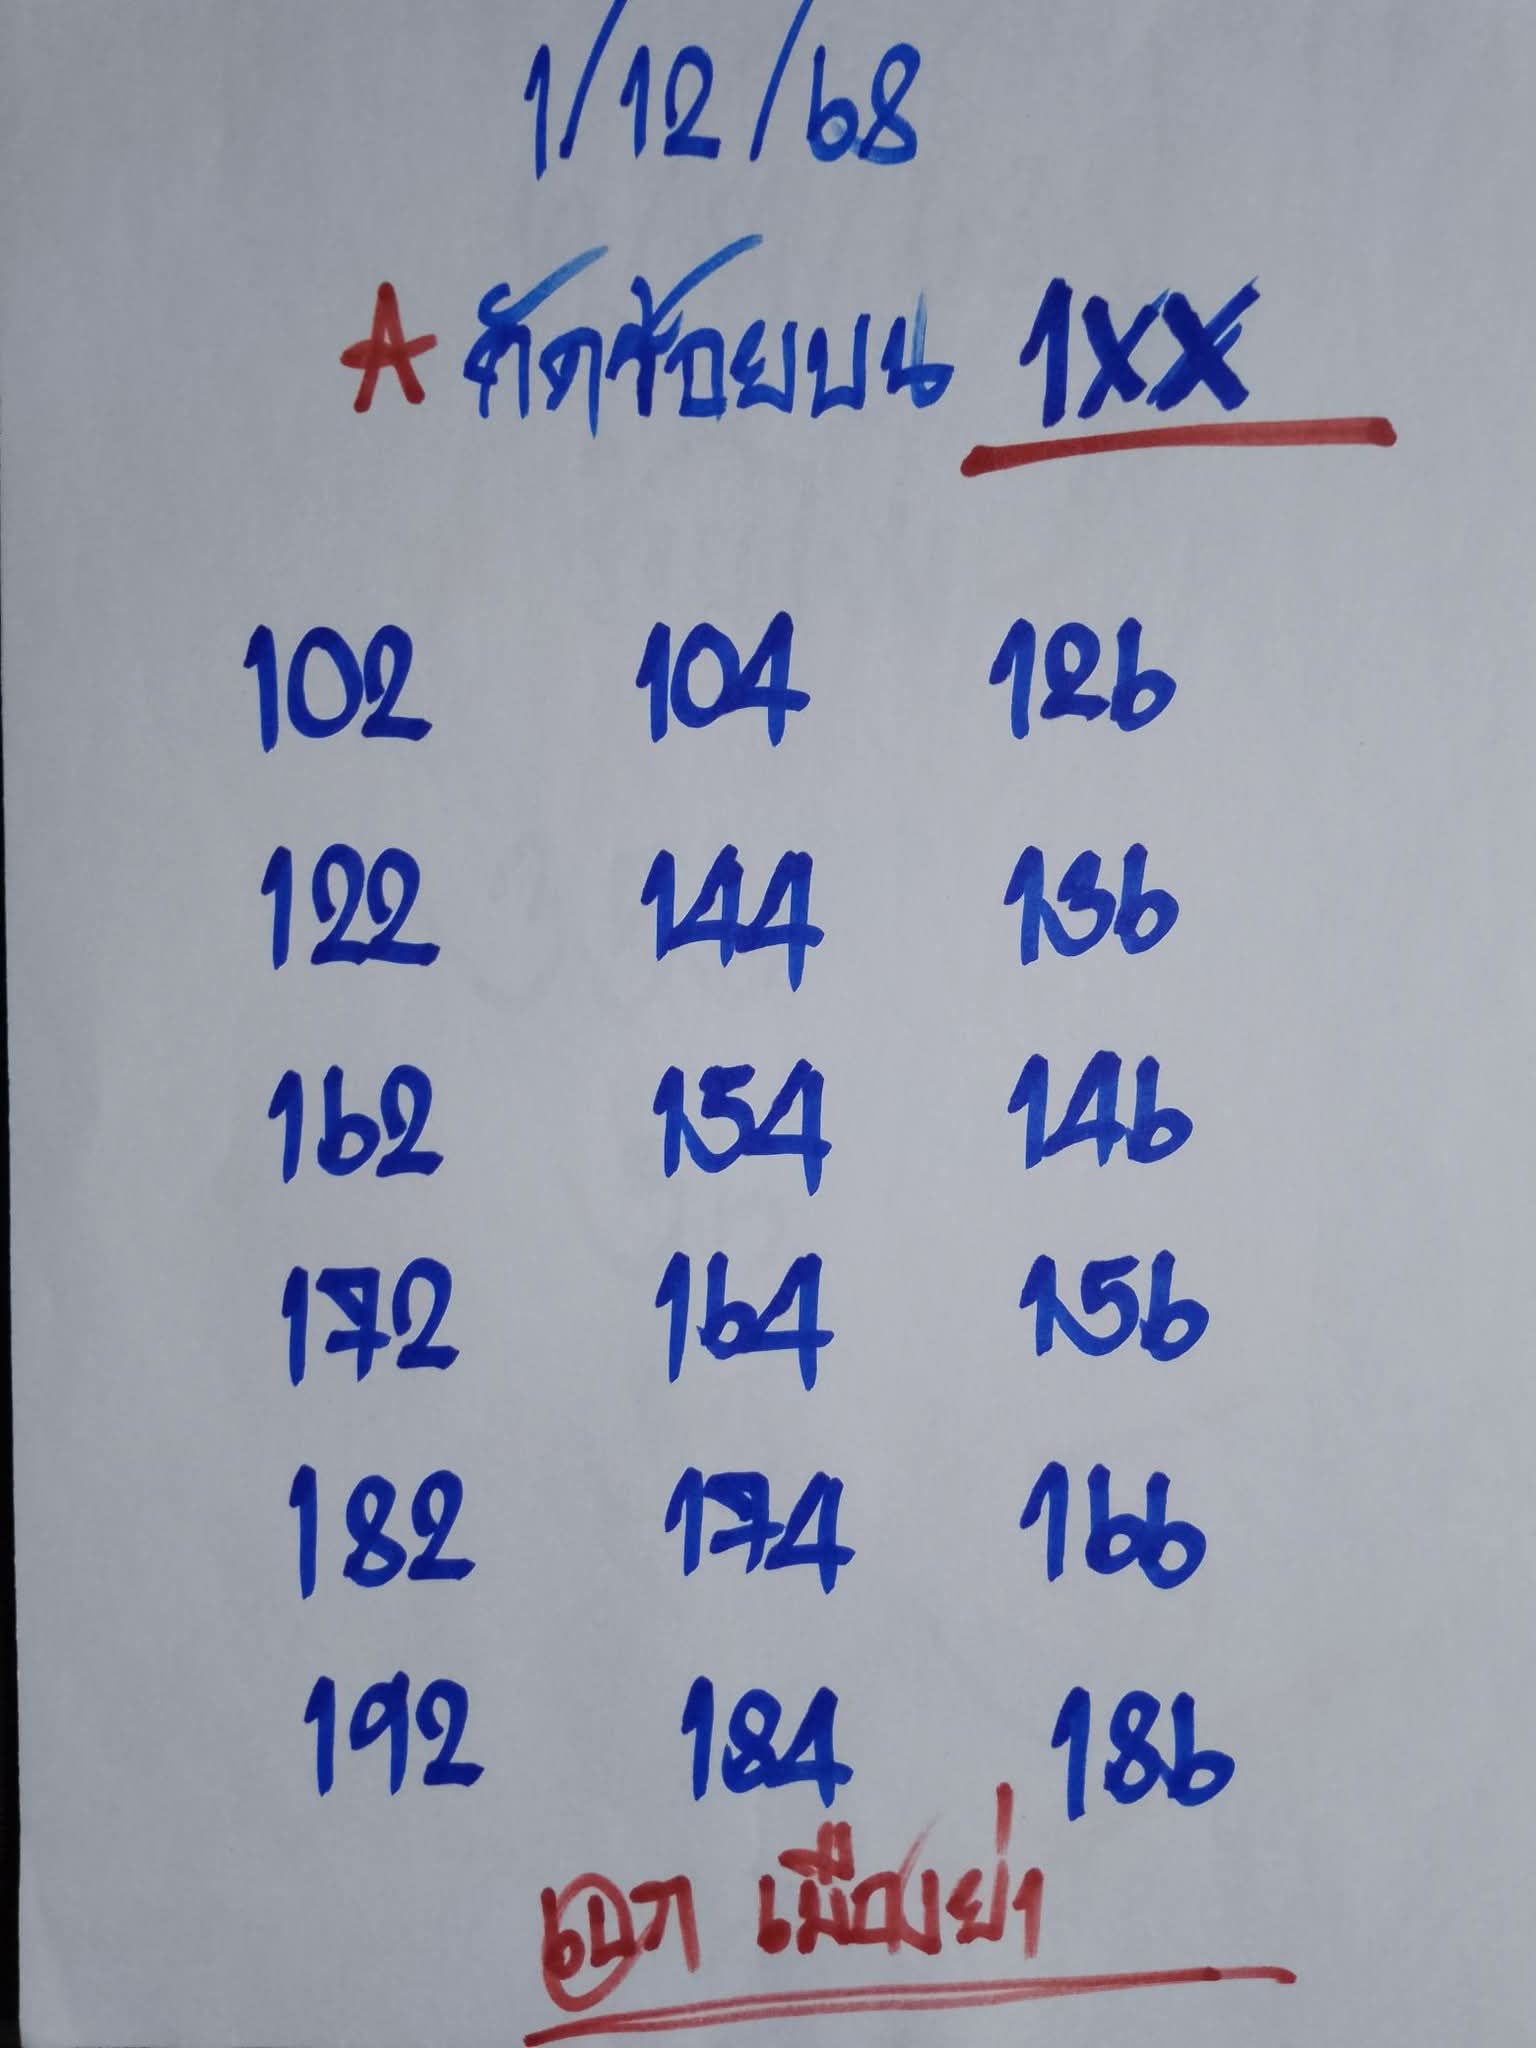 1/12/68
A คัดร้อยบน 1XX
102 104 126
122 144 136
162 154 146
172 164 156
182 174 166
192 184 186
เอก เมืองย่า